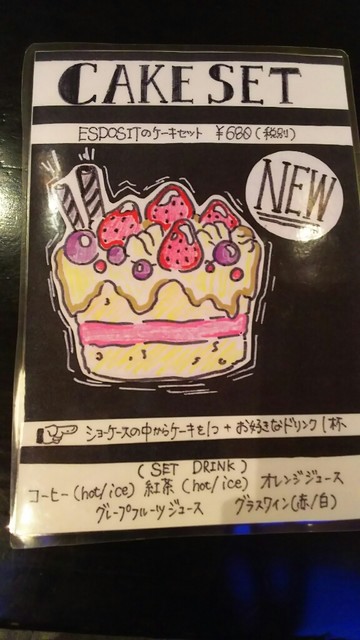 CAKE SET
ESPOSITのケーキセット ¥680(税別)
NEW
ショーケースの中からケーキを1つ + お好きなドリンク1杯
(SET DRINK)
コーヒー(hot/ice) 紅茶(hot/ice) オレンジジュース
グレープフルーツジュース グラスワイン(赤/白)